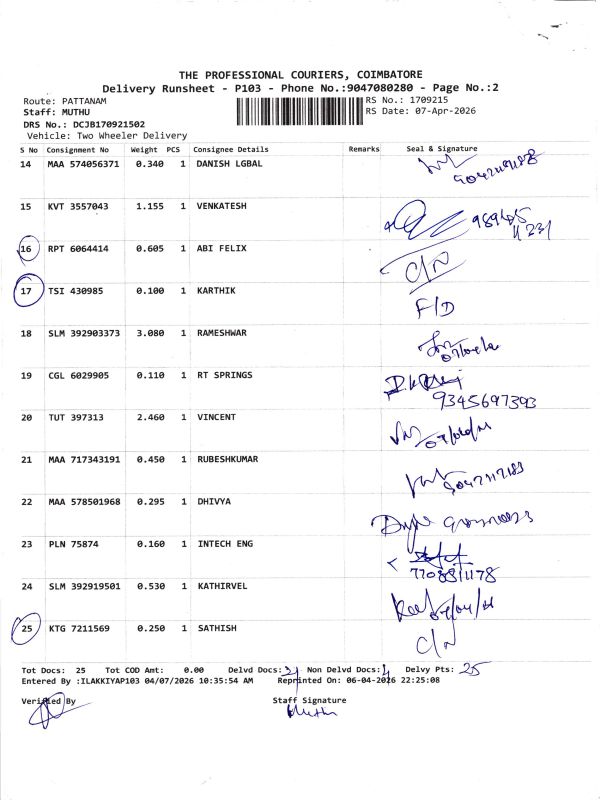 THE PROFESSIONAL COURIERS, COIMBATORE
Delivery Runsheet - P103 - Phone No.:9047080280 - Page No.:2
Route: PATTANAM RS No.: 1709215
Staff: MUTHU RS Date: 07-Apr-2026
DRS No.: DCJB170921502
Vehicle: Two Wheeler Delivery
S No Consignment No Weight PCS Consignee Details Remarks Seal & Signature
14 MAA 574056371 0.340 1 DANISH LGBAL
15 KVT 3557043 1.155 1 VENKATESH
16 RPT 6064414 0.605 1 ABI FELIX C/N
17 TSI 430985 0.100 1 KARTHIK F/D
18 SLM 392903373 3.080 1 RAMESHWAR
19 CGL 6029905 0.110 1 RT SPRINGS
9345697393
20 TUT 397313 2.460 1 VINCENT
21 MAA 717343191 0.450 1 RUBESHKUMAR
22 MAA 578501968 0.295 1 DHIVYA
23 PLN 75874 0.160 1 INTECH ENG
24 SLM 392919501 0.530 1 KATHIRVEL
25 KTG 7211569 0.250 1 SATHISH C/N
Tot Docs: 25 Tot COD Amt: 0.00 Delvd Docs: Non Delvd Docs: Delvy Pts: 25
Entered By :ILAKKIYAP103 04/07/2026 10:35:54 AM Reprinted On: 06-04-2026 22:25:08
Verified By Staff Signature
Muthu